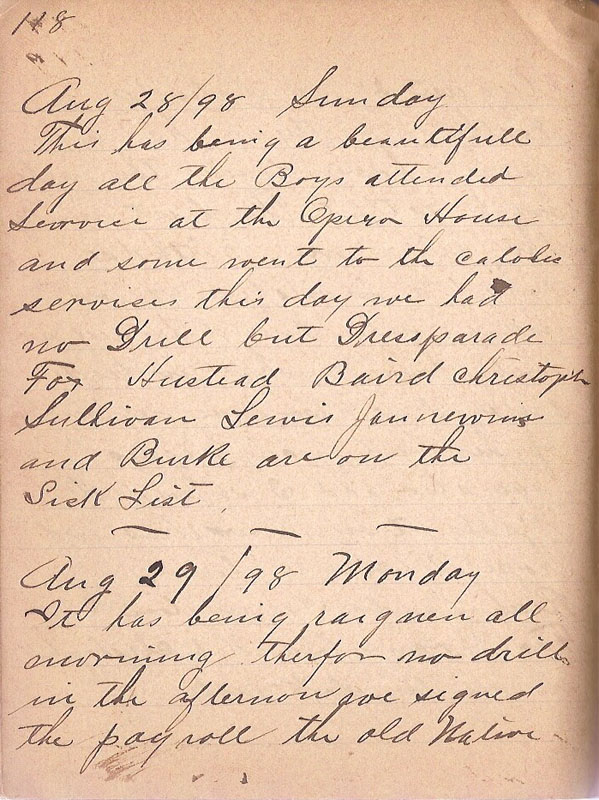 118
Aug 28/98 Sunday
This has being a beautifull
day all the Boys attended
Seorvice at the Opera House
and some went to the catolic
services this day we had
no Drill but Dressparade
Fox Hustead Baird Christoph
Sullivan Lewis
and Burke are on the
Sick List
Aug 29/98 Monday
It has being raignen all
morining therfor no drill
in the afternon we signed
the payroll the old Native